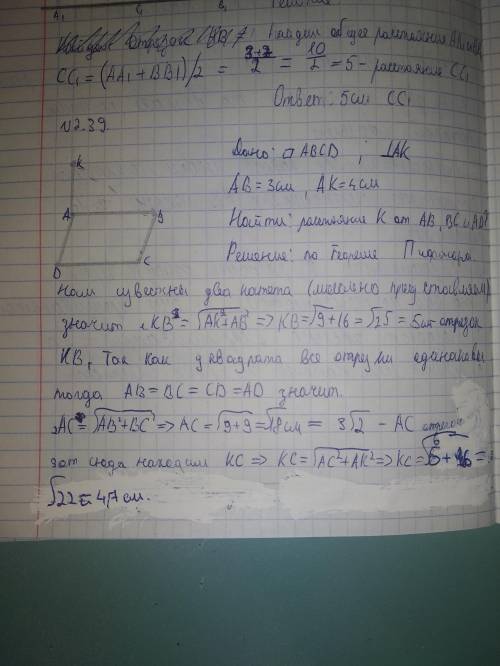 A₁ C₁ B₁ Решение
Найдем общее расстояние
CC₁ = (AA₁ + BB1)/2 = 3+7/2 = 10/2 = 5 - расстояние CC₁
Ответ: 5см CC₁
N2.39.
K
A B
D C
Дано: □ ABCD ; ⊥AK
AB = 3см, AK = 4см
Найти: расстояние K от AB, BC и AD
Решение: по теореме Пифагора
Нам известны два катета (мысленно представляем)
значит KB² = √AK²+AB² => KB = √9+16 = √25 = 5см отрезок
KB, Так как у квадрата все отрезки одинаковы
тогда AB = BC = CD = AD значит.
AC² = √AB²+BC² => AC = √9+9 = √18 см = 3√2 - AC отрезок
отсюда находим KC => KC = √AC²+AK² => KC = √6+16 =
√22 = 4,7 см.